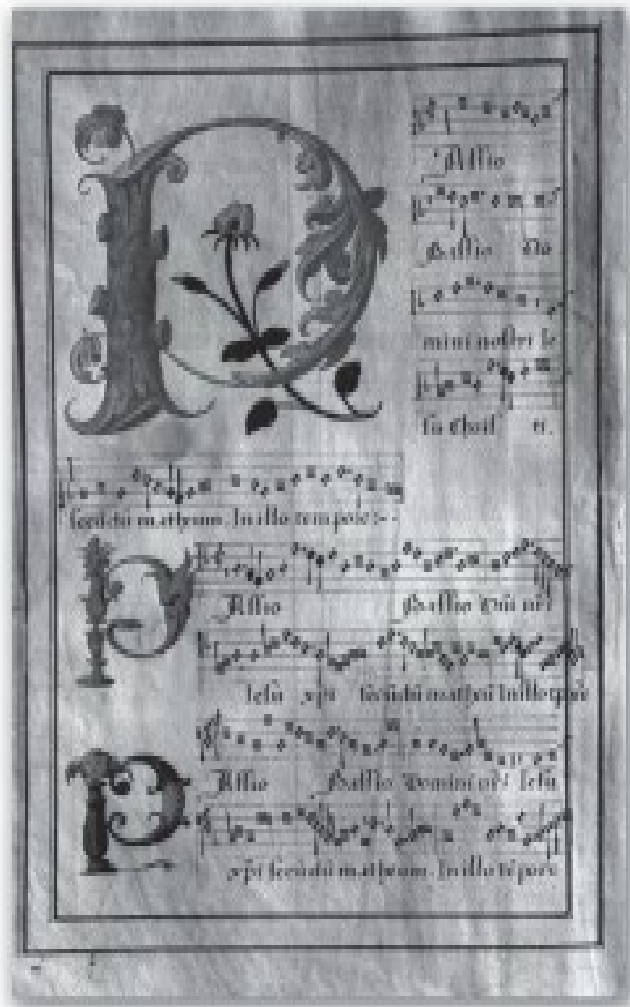 Passio
Passio Do
mini nostri Ie
su Christi.
secũdũ matheum. In illo tempore:--
Passio Passio Dñi nr̃i
Iesũ xp̃i secũdũ matheũ In illo tp̃ore
Passio Passio Domini nr̃i Iesũ
xp̃i secũdũ matheum. In illo tẽpore